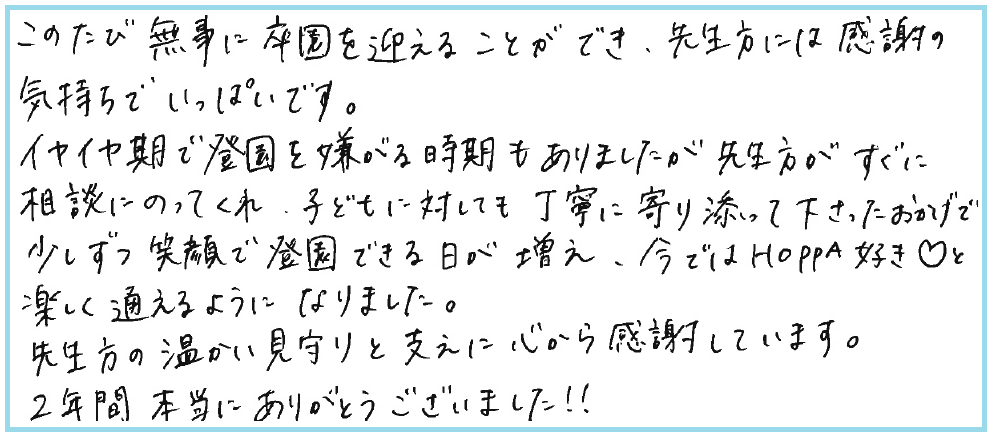 このたび無事に卒園を迎えることができ、先生方には感謝の
気持ちでいっぱいです。
イヤイヤ期で登園を嫌がる時期もありましたが先生方がすぐに
相談にのってくれ、子どもに対しても丁寧に寄り添って下さったおかげで
少しずつ笑顔で登園できる日が増え、今ではHOPPA好き♡と
楽しく通えるようになりました。
先生方の温かい見守りと支えに心から感謝しています。
2年間本当にありがとうございました!!